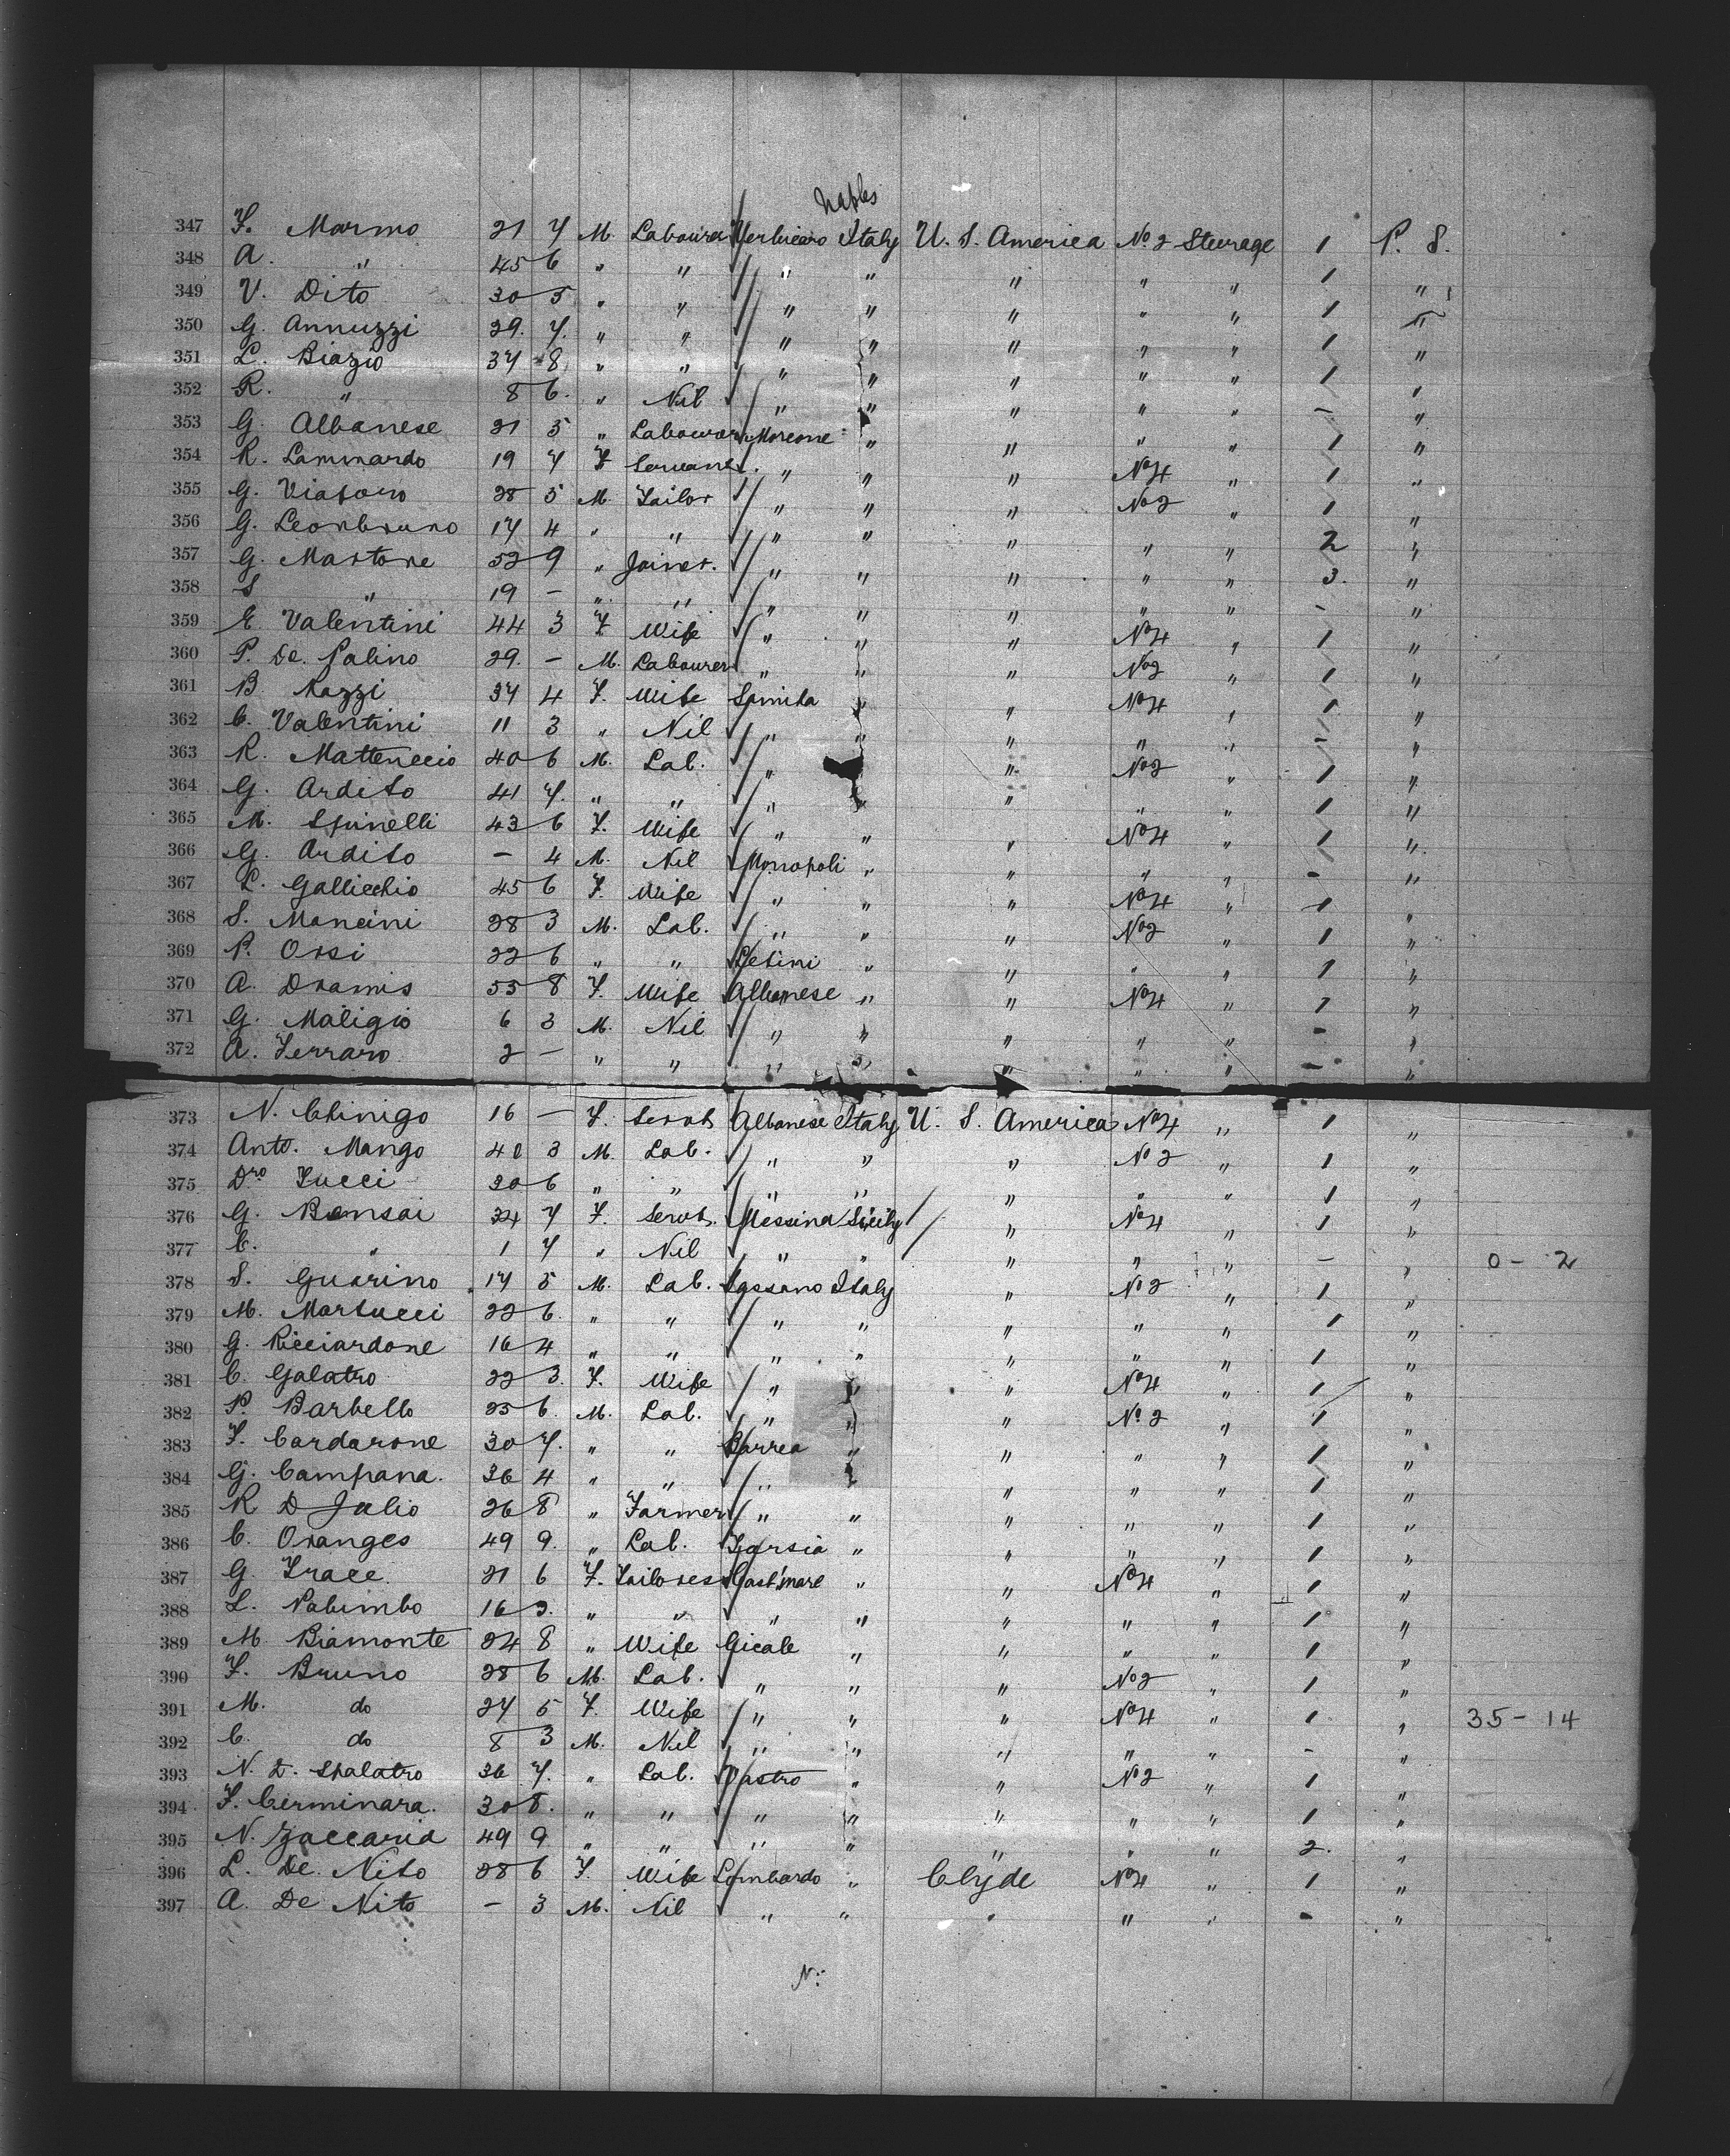 Naples
347 F. Marmo 21 7 M. Labourer Verbicaro Italy U. S. America No 2 Steerage 1 P. S.
348 A. " 45 6 " " " " " " " 1 "
349 V. Dito 30 5 " " " " " " " 1 "
350 G. Annuzzi 29. 7. " " " " " " " 1 "
351 L. Biazio 37 8 " " " " " " " 1 "
352 R. " 8 6. " Nil " " " " " - "
353 G. Albanese 21 5 " Labourer Morcone " " " " 1 "
354 R. Lammardo 19 7 F Servant " " " No 4 " 1 "
355 G. Viasoro 28 5 M. Tailor " " " No 2 " 1 "
356 G. Leonbruno 17 4 " " " " " " " 2 "
357 G. Martone 52 9 " Joiner. " " " " " 3. "
358 S " 19 - " " " " " " " - "
359 E. Valentini 44 3 F. Wife " " " No 4 " 1 "
360 P. De. Palino 29. - M. Labourer " " " No 2 " 1 "
361 B. Razzi 37 4 F. Wife " " No 4 " 1 "
362 C. Valentini 11 3 " Nil " " " " " - "
363 R. Matteuccio 40 6 M. Lab. " " No 2 " 1 "
364 G. Ardito 41 7. " " " " " " " 1 "
365 M. Spinelli 43 6 F. Wife " " " No 4 " 1 "
366 G. Ardito - 4 M. Nil Monopoli " " " " - "
367 L. Gallicchio 45 6 F. Wife " " " No 4 " 1 "
368 S. Mancini 28 3 M. Lab. " " " No 2 " 1 "
369 P. Orsi 22 6 " " Letini " " " " 1 "
370 A. Dramis 55 8 F. Wife Albanese " " No 4 " 1 "
371 G. Maligio 6 3 M. Nil " " " " " - "
372 A. Ferraro 2 - " " " " " " " - "
373 N. Chinigo 16 - F. Servt. Albanese Italy U. S. America No 4 " 1 "
374 Anto. Mango 40 3 M. Lab. " " " No 2 " 1 "
375 Dro Tucci 30 6 " " " " " " " 1 "
376 G. Bonsai 24 7 F. Servt. Messina Sicily " No 4 " 1 "
377 C. " 1 7 " Nil " " " " " - " 0 - 2
378 S. Guarino 17 5 M. Lab. Italy " No 2 " 1 "
379 M. Martucci 22 6. " " " " " " " 1 "
380 G. Ricciardone 16 4 " " " " " " " 1 "
381 C. Galatro 22 3. F. Wife " " " No 4 " 1 "
382 P. Barbello 25 6. M. Lab. " " " No 2 " 1 "
383 F. Cardarone 30 7. " " Barrea " " " " 1 "
384 G. Campana. 36 4 " " " " " " 1 "
385 R D Julio 26 8 " Farmer " " " " " 1 "
386 C. Oranges 49 9. " Lab. Tarsia " " " " 1 "
387 G. Trace 21 6 F. Tailoress Cast'mare " " No 4 " 1 "
388 L. Palumbo 16 3. " " " " " " " 1 "
389 M. Biamonte 24 8 " Wife Cicale " " " " 1 "
390 F. Bruno 28 6 M. Lab. " " " No 2 " 1 "
391 M. do 27 5 F. Wife " " " No 4 " 1 " 35 - 14
392 C. do 8 3 M. Nil " " " " " - "
393 N. D. Spalatro 36 7. " Lab. Vastro " " No 2 " 1 "
394 F. Cerminara. 30 8. " " " " " " " 1 "
395 N. Zaccaria 49 9 " " " " " " " 2. "
396 L. De Nito 28 6 F. Wife Lombardo " Clyde No 4 " 1 "
397 A. De Nito - 3 M. Nil " " " " " - "